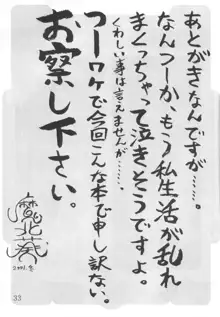 あとがきなんですが……。
なんつーか、もう私生活が乱れ
まくっちゃって泣きそうですよ。
くわしい事は言えませんが……。
つーワケで今回こんな本で申し訳ない。
お察し下さい。
魔北葵
2001.冬
33